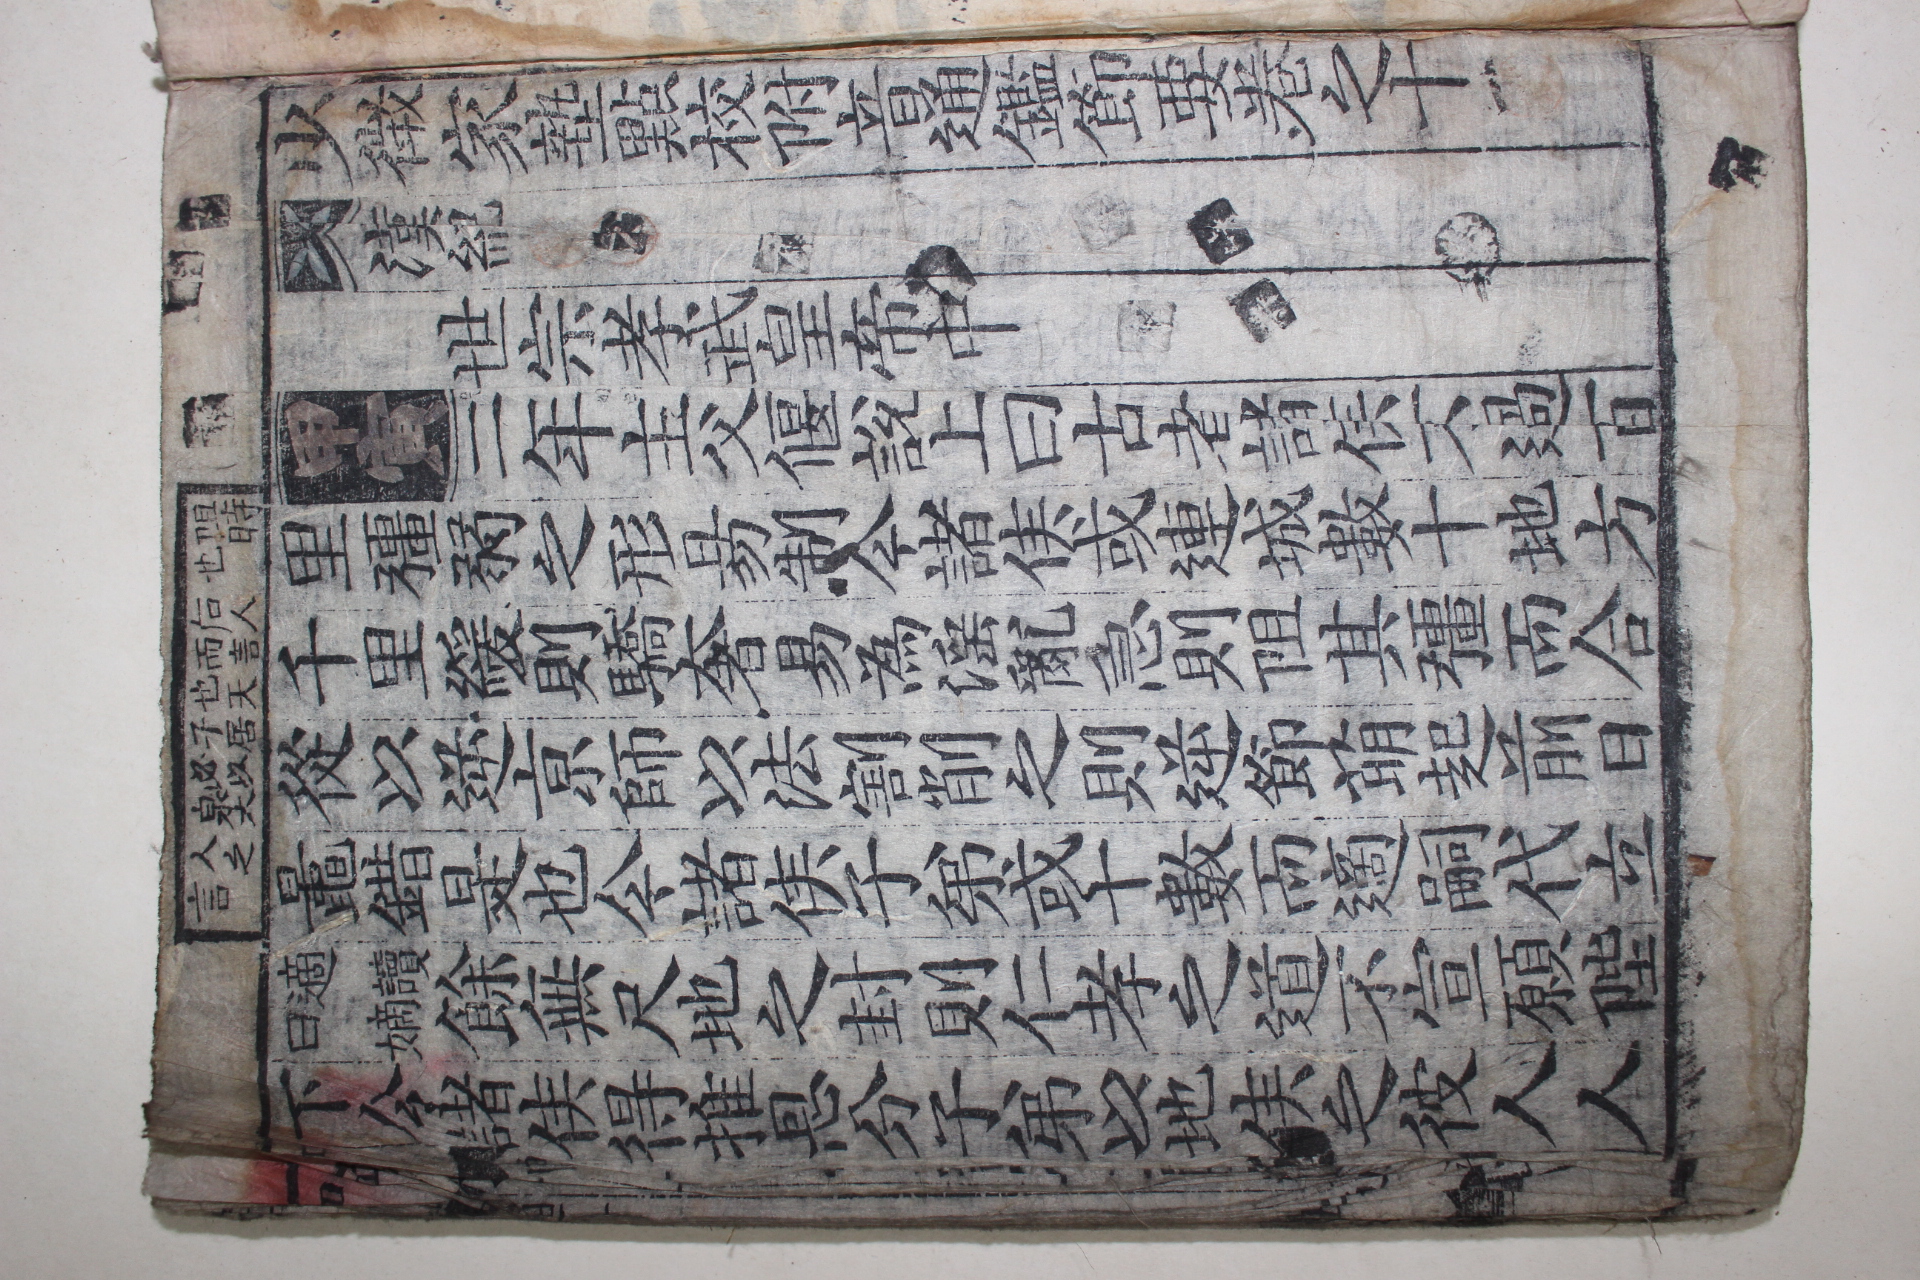 少微家塾點校附音通鑑節要卷之十
漢紀
世宗孝武皇帝中
甲寅二年主父偃說上曰古者諸侯不過百
里彊弱之形易制今諸侯或連城數十地方
千里緩則驕奢易爲滛亂急則阻其彊而合
從以逆京師以法割削之則逆節萌起前日
鼂錯是也今諸侯子弟或十數而適嗣代立
適讀曰嫡餘無尺地之封則仁孝之道不宣願陛
下令諸侯得推恩分子弟以地侯之彼人人